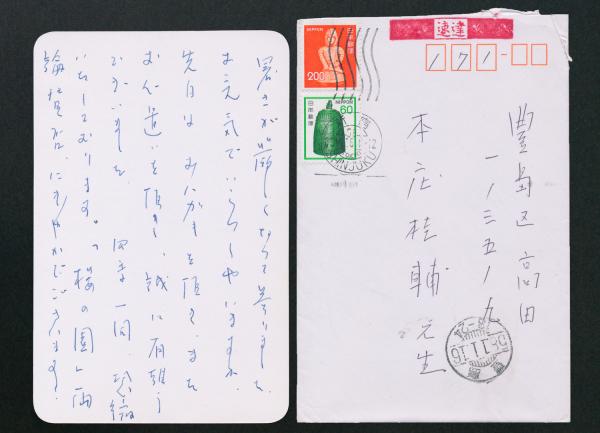 寒さが厳しくなって参りました。
お元気でいらっしゃいますか。
先日はおハガキを頂き、また
お心遣いを頂き、誠に有難う
ございました。一同、恐縮
いたしております。「桜の園」
にぎやかでございます。
速達
171
日本郵便
NIPPON
200
日本郵便
NIPPON
60
SHINJUKU
豊島区高田
一ノ三五ノ九
本庄桂輔先生
58.11.16